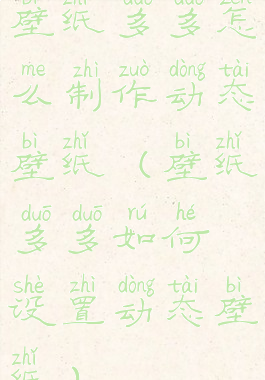 bì zhǐ duō duō zěn
壁纸多多怎
me zhì zuò dòng tài
么制作动态
bì zhǐ bì zhǐ
壁纸(壁纸
duō duō rú hé
多多如何
shè zhì dòng tài bì
设置动态壁
zhǐ
纸)